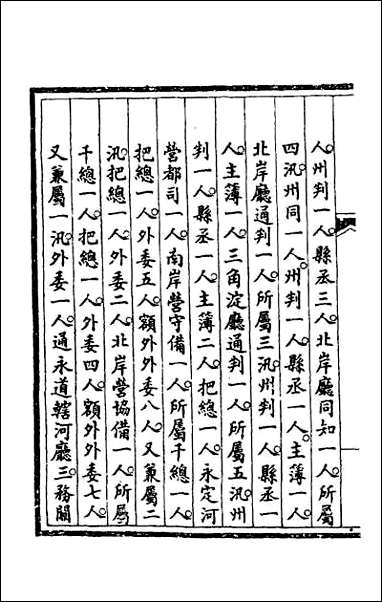 人州判一人縣丞三人北岸廳同知一人所屬
四汛州同一人州判一人縣丞一人主簿一人
北岸廳通判一人所屬三汛州判一人縣丞一
人主簿一人三角淀廳通判一人所屬五汛州
判一人縣丞一人主簿二人把總一人永定河
營都司一人南岸營守備一人所屬千總一人
把總一人外委五人額外外委八人又兼屬二
汛把總一人外委二人北岸營協備一人所屬
千總一人把總一人外委四人額外外委七人
又兼屬一汛外委一人通永道轄河廳三務關